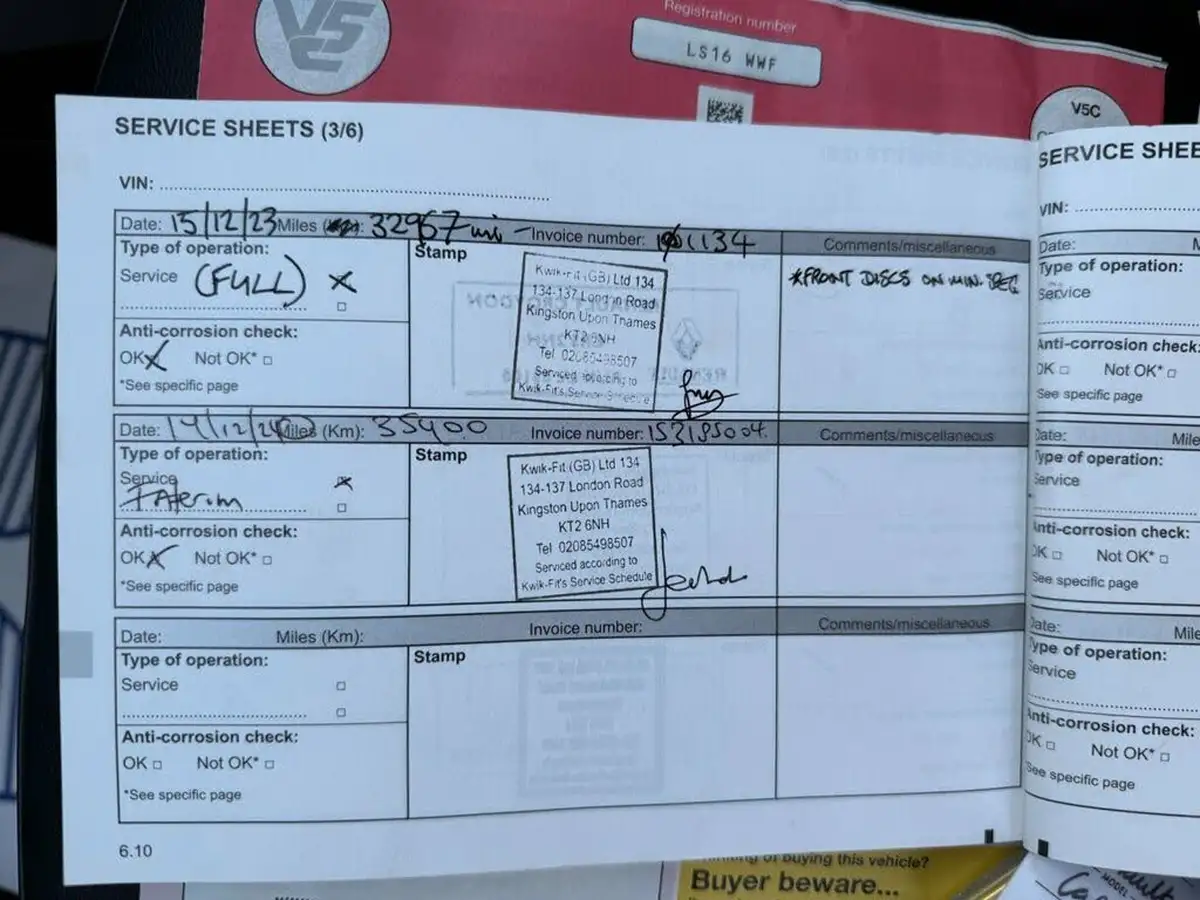 V5C
Registration number
LS16 WWF
V5C
SERVICE SHEETS (3/6)
VIN:
Date: 15/12/23 Miles : 32967 mi - Invoice number: 101134
Comments/miscellaneous
Type of operation:
Service (FULL) X
Stamp
Kwik-Fit (GB) Ltd 134
134-137 London Road
Kingston Upon Thames
KT2 6NH
Tel 02085498507
Serviced according to
Kwik-Fit's Service Schedule
*FRONT DISCS ON MIN.
Anti-corrosion check:
OK X Not OK*
*See specific page
Date: 14/12/24 Miles (Km): 35400 Invoice number: 153195004.
Comments/miscellaneous
Type of operation:
Service X
Interim
Stamp
Kwik-Fit (GB) Ltd 134
134-137 London Road
Kingston Upon Thames
KT2 6NH
Tel 02085498507
Serviced according to
Kwik-Fit's Service Schedule
Anti-corrosion check:
OK X Not OK*
*See specific page
Date: Miles (Km): Invoice number:
Comments/miscellaneous
Type of operation:
Service
Stamp
Anti-corrosion check:
OK Not OK*
*See specific page
6.10
SERVICE SHEE
VIN:
Date: M
Type of operation:
Service
Anti-corrosion check:
OK Not OK*
*See specific page
Date: Mile
Type of operation:
Service
Anti-corrosion check:
OK Not OK*
*See specific page
Date: Mile
Type of operation:
Service
Anti-corrosion check:
OK Not OK*
*See specific page
of buying this vehicle?
Buyer beware...
MODEL